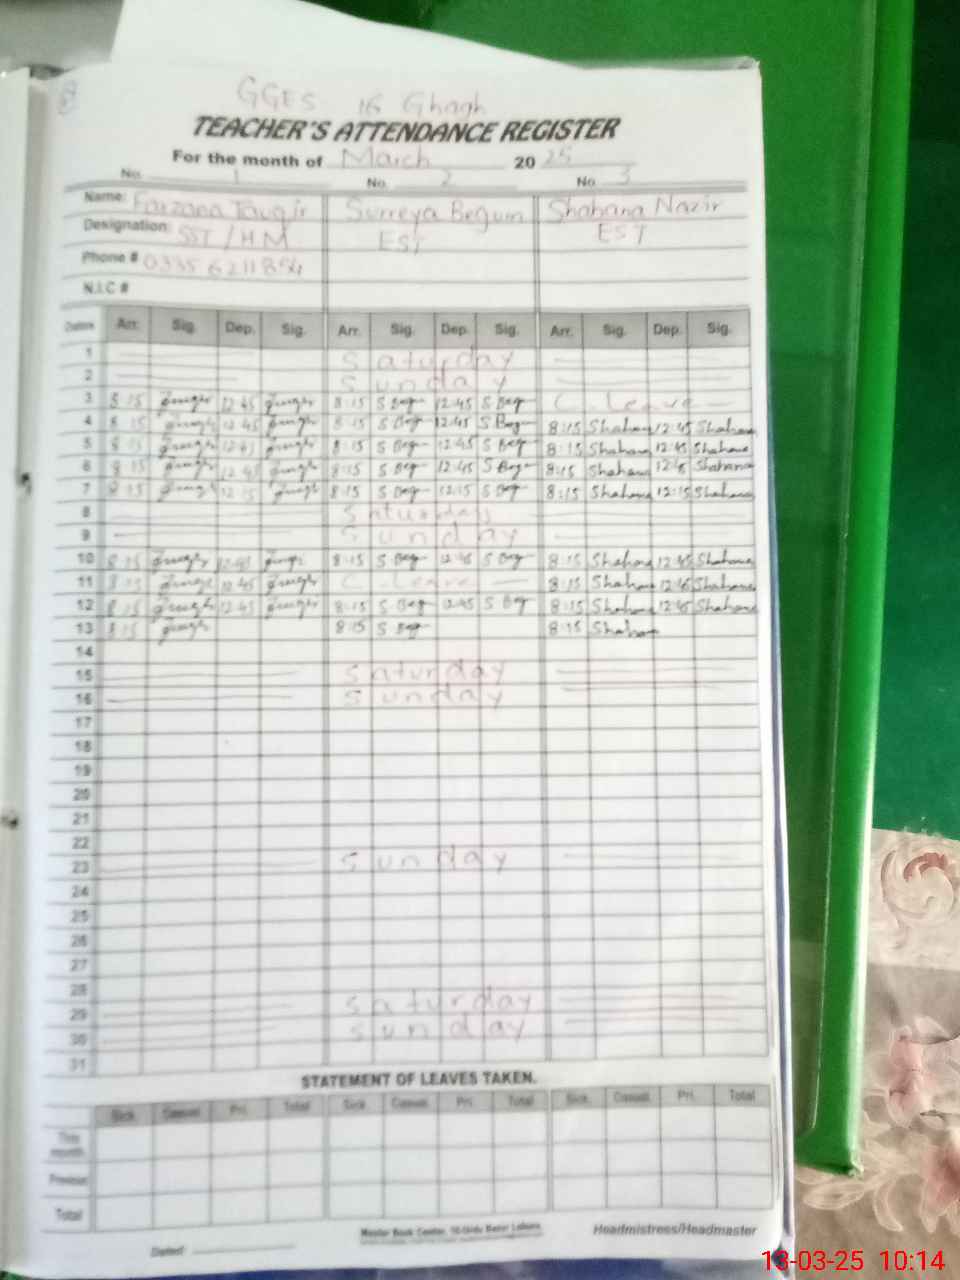 GGES 16 Ghagh
TEACHER'S ATTENDANCE REGISTER
For the month of March 2025
No. 1 No. 2 No 3
Name: Farzana Tauqir Surreya Begum Shabana Nazir
Designation: SST / HM EST EST
Phone # 0335 6211854
N.I.C #
Dates Arr. Sig. Dep. Sig. Arr. Sig. Dep. Sig. Arr. Sig. Dep. Sig.
1 Saturday
2 Sunday
3 8:15 12:45 8:15 S Beg 12:45 S Beg C. Leave
4 8 15 12 45 8:15 S Beg 12:45 S Beg 8:15 Shahana 12:45 Shahana
5 8 15 12:45 8:15 S Beg 12:45 S Beg 8:15 Shahana 12:45 Shahana
6 8 15 12 45 8:15 S Beg 12:45 S Beg 8:15 Shahana 12:45 Shahana
7 8 15 12:15 8:15 S Beg 12:15 S Beg 8:15 Shahana 12:15 Shahana
8 Saturday
9 Sunday
10 8:15 12:45 8:15 S Beg 12:45 S Beg 8:15 Shahana 12:45 Shahana
11 8:15 12 45 C. Leave 8:15 Shahana 12:45 Shahana
12 8:15 12:45 8:15 S Beg 12:45 S Beg 8:15 Shahana 12:45 Shahana
13 8:15 8:15 S Beg 8:15 Shahana
14
15 Saturday
16 Sunday
17
18
19
20
21
22
23 Sunday
24
25
26
27
28
29 Saturday
30 Sunday
31
STATEMENT OF LEAVES TAKEN.
Sick. Casual. Pri. Total Sick. Casual. Pri. Total Sick. Casual. Pri. Total
This month.
Previous
Total
Master Book Center, Urdu Bazar Lahore.
Headmistress/Headmaster
Dated:
13-03-25 10:14